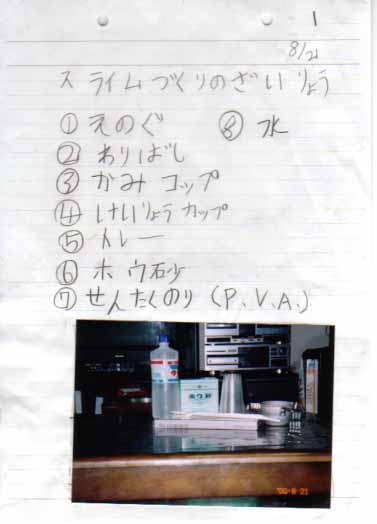 1
8/21
スライムづくりのざいりょう
①えのぐ ⑧水
②わりばし
③かみコップ
④けいりょうカップ
⑤トレー
⑥ホウ砂
⑦せんたくのり(P.V.A.)
ホウ砂
'00 8 21